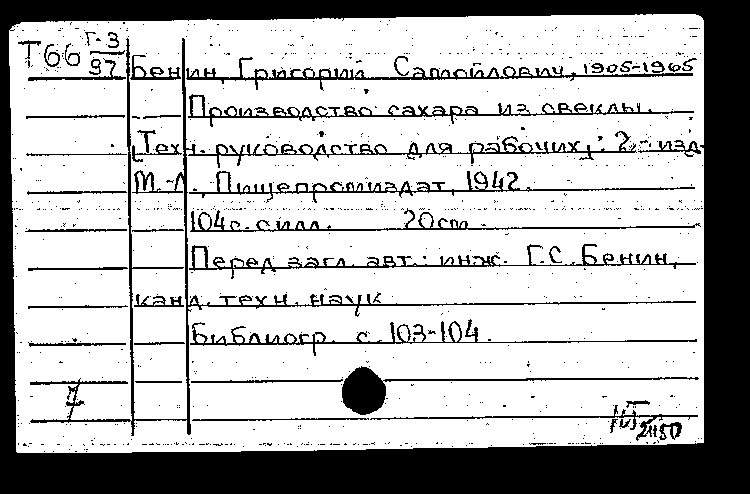 Т66 Г-3/97
Бенин, Григорий Самойлович, 1905-1965
Производство сахара из свеклы.
[Техн. руководство для рабочих]: 2-е изд.
М.-Л., Пищепромиздат, 1942.
104 с. с илл. 20 cm.
Перед загл. авт.: инж. Г.С. Бенин,
канд. техн. наук
Библиогр. с. 103-104.
7